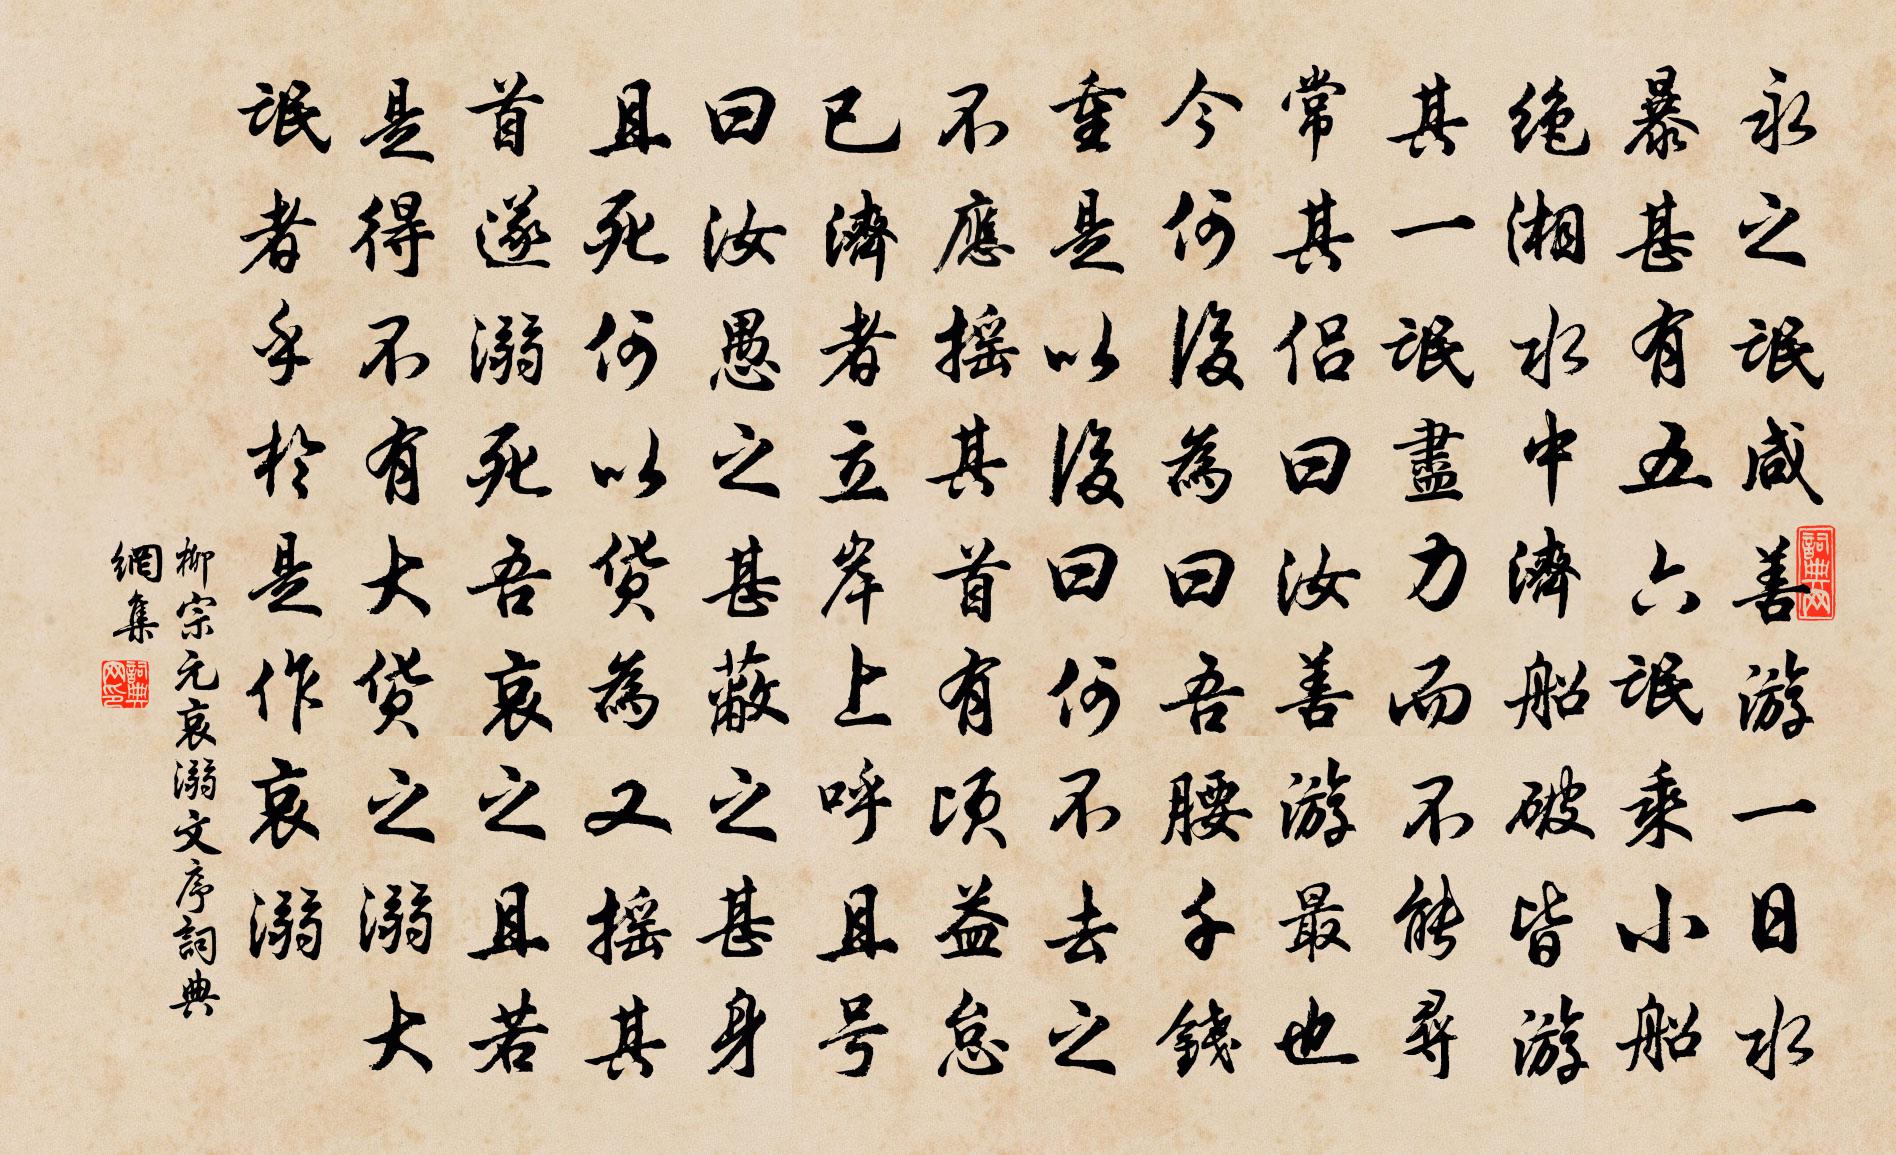 永之氓咸善游一日水
暴甚有五六氓乘小船
绝湘水中濟船破皆游
其一氓盡力而不能尋
常其侣曰汝善游最也
今何後為曰吾腰千錢
重是以後曰何不去之
不應摇其首有頃益怠
已濟者立岸上呼且号
曰汝愚之甚蔽之甚身
且死何以貨為又摇其
首遂溺死吾哀之且若
是得不有大貨之溺大
氓者乎於是作哀溺
柳宗元哀溺文序詞典
網集
詞典网
詞典网印